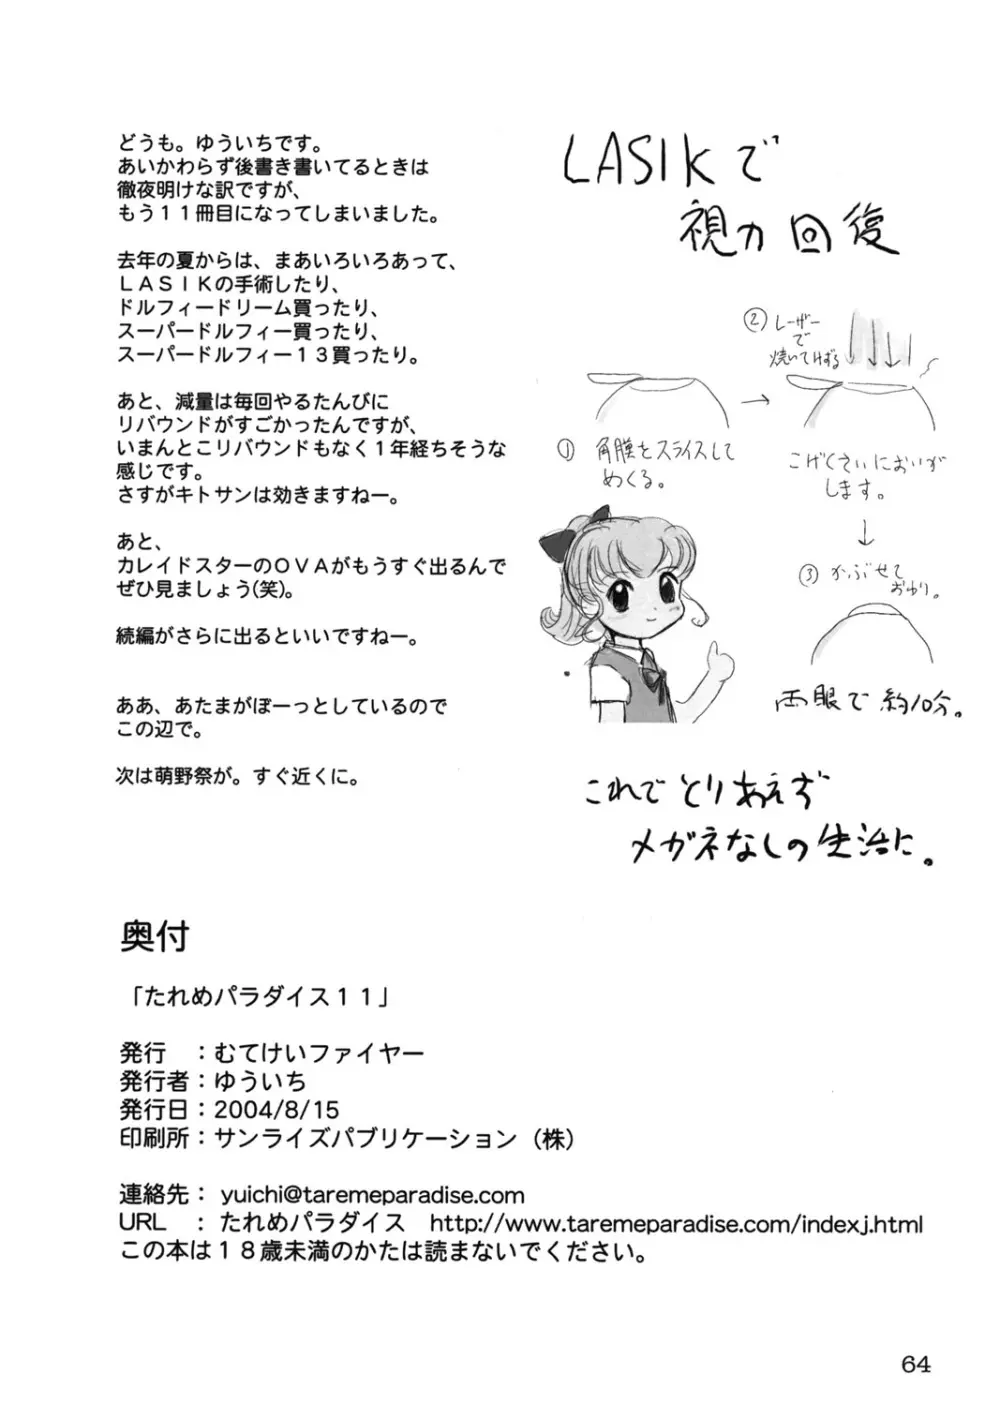 どうも。ゆういちです。
あいかわらず後書き書いてるときは
徹夜明けな訳ですが、
もう１１冊目になってしまいました。
去年の夏からは、まあいろいろあって、
ＬＡＳＩＫの手術したり、
ドルフィードリーム買ったり、
スーパードルフィー買ったり、
スーパードルフィー１３買ったり。
あと、減量は毎回やるたんびに
リバウンドがすごかったんですが、
いまんとこリバウンドもなく１年経ちそうな
感じです。
さすがキトサンは効きますねー。
あと、
カレイドスターのＯＶＡがもうすぐ出るんで
ぜひ見ましょう(笑)。
続編がさらに出るといいですねー。
ああ、あたまがぼーっとしているので
この辺で。
次は萌野祭が。すぐ近くに。
LASIKで
視力回復
① 角膜をスライスして
めくる。
→
② レーザー
で
焼いてけずる
こげくさいにおいが
します。
↓
③ かぶせて
おわり。
両眼で約10分。
これでとりあえず
メガネなしの生活に。
奥付
「たれめパラダイス１１」
発行　：むてけいファイヤー
発行者：ゆういち
発行日：2004/8/15
印刷所：サンライズパブリケーション（株）
連絡先： yuichi@taremeparadise.com
URL　：たれめパラダイス　http://www.taremeparadise.com/indexj.html
この本は１８歳未満のかたは読まないでください。
64